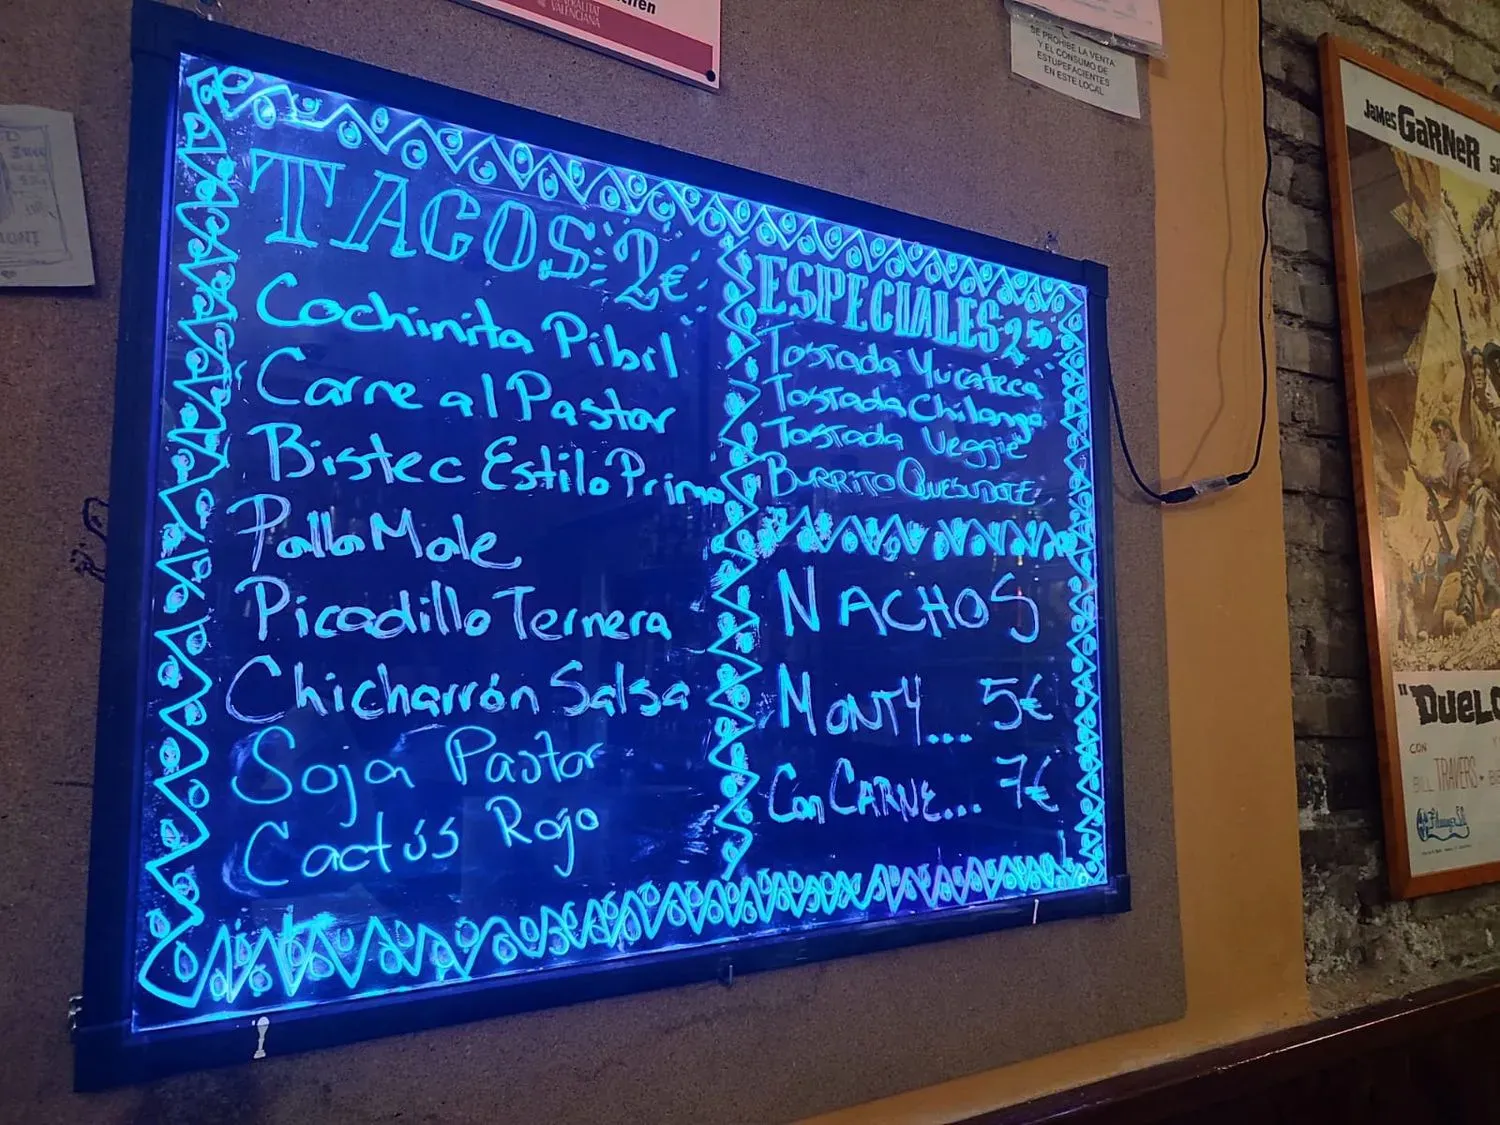 GENERALITAT
VALENCIANA
SE PROHIBE LA VENTA
Y EL CONSUMO DE
ESTUPEFACIENTES
EN ESTE LOCAL
TACOS 2€
Cochinita Pibil
Carne al Pastor
Bistec Estilo Primo
Pollo Mole
Picadillo Ternera
Chicharrón Salsa
Soja Pastor
Cactús Rojo
ESPECIALES 2,50
Tostada Yucateca
Tostada Chilanga
Tostada Veggie
BURRITO QUESUDOTE
NACHOS
MONTY... 5€
Con CARNE... 7€
JAMES GARNER
"DUELO
CON
BILL TRAVERS